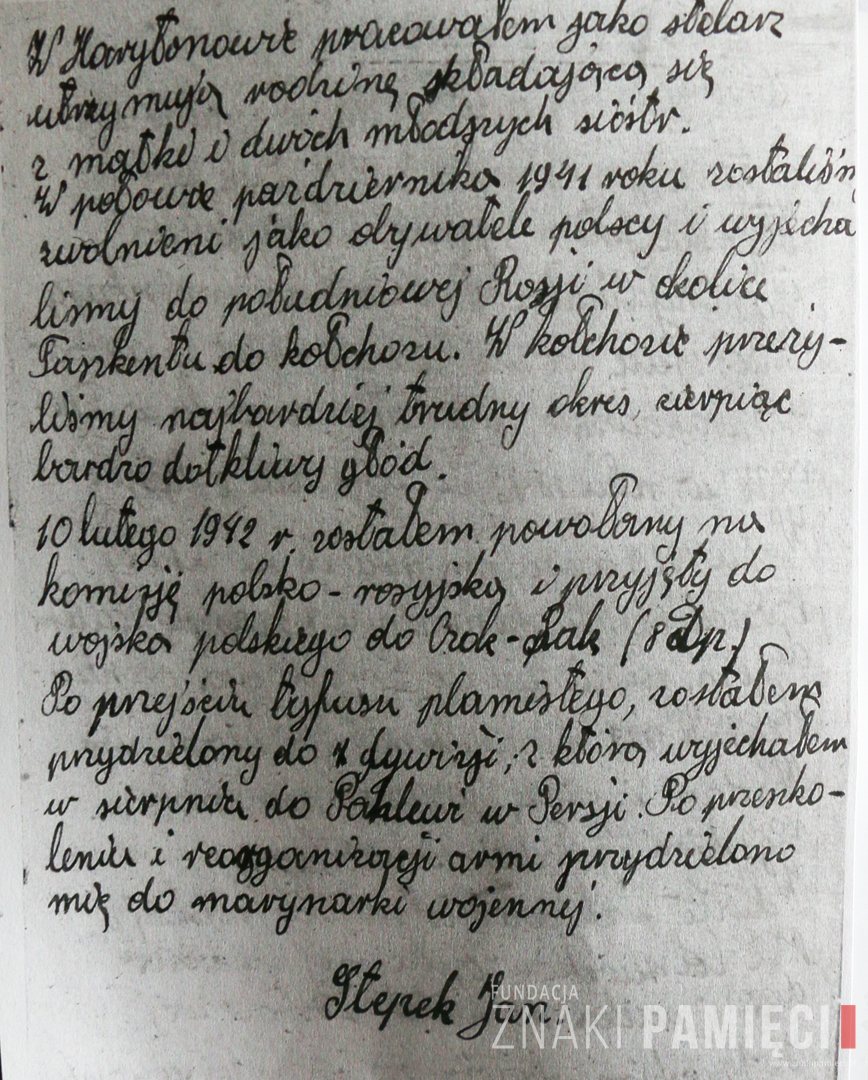 W Harytonowie pracowałem jako stolarz
utrzymują rodzinę składającą się
z matki i dwóch młodszych sióstr.
W połowie październiku 1941 roku zostaliśm
zwolnieni jako obywatele polscy i wyjecha
liśmy do południowej Rosji w okolice
Taszkentu do kołchozu. W kołchozie przeży-
liśmy najbardziej trudny okres, cierpiąc
bardzo dotkliwy głód.
10 lutego 1942 r. zostałem powołany na
komisję polsko-rosyjską i przyjęty do
wojska polskiego do Czok-Pak (8 Dp.)
Po przejściu tyfusu plamistego, zostałem
przydzielony do dywizji, z którą wyjechałem
w sierpniu do Pahlewi w Persji. Po przeszko-
leniu i reorganizacji armi przydzielono
mię do marynarki wojennej.
Stepek Jan.
FUNDACJA
ZNAKI PAMIĘCI